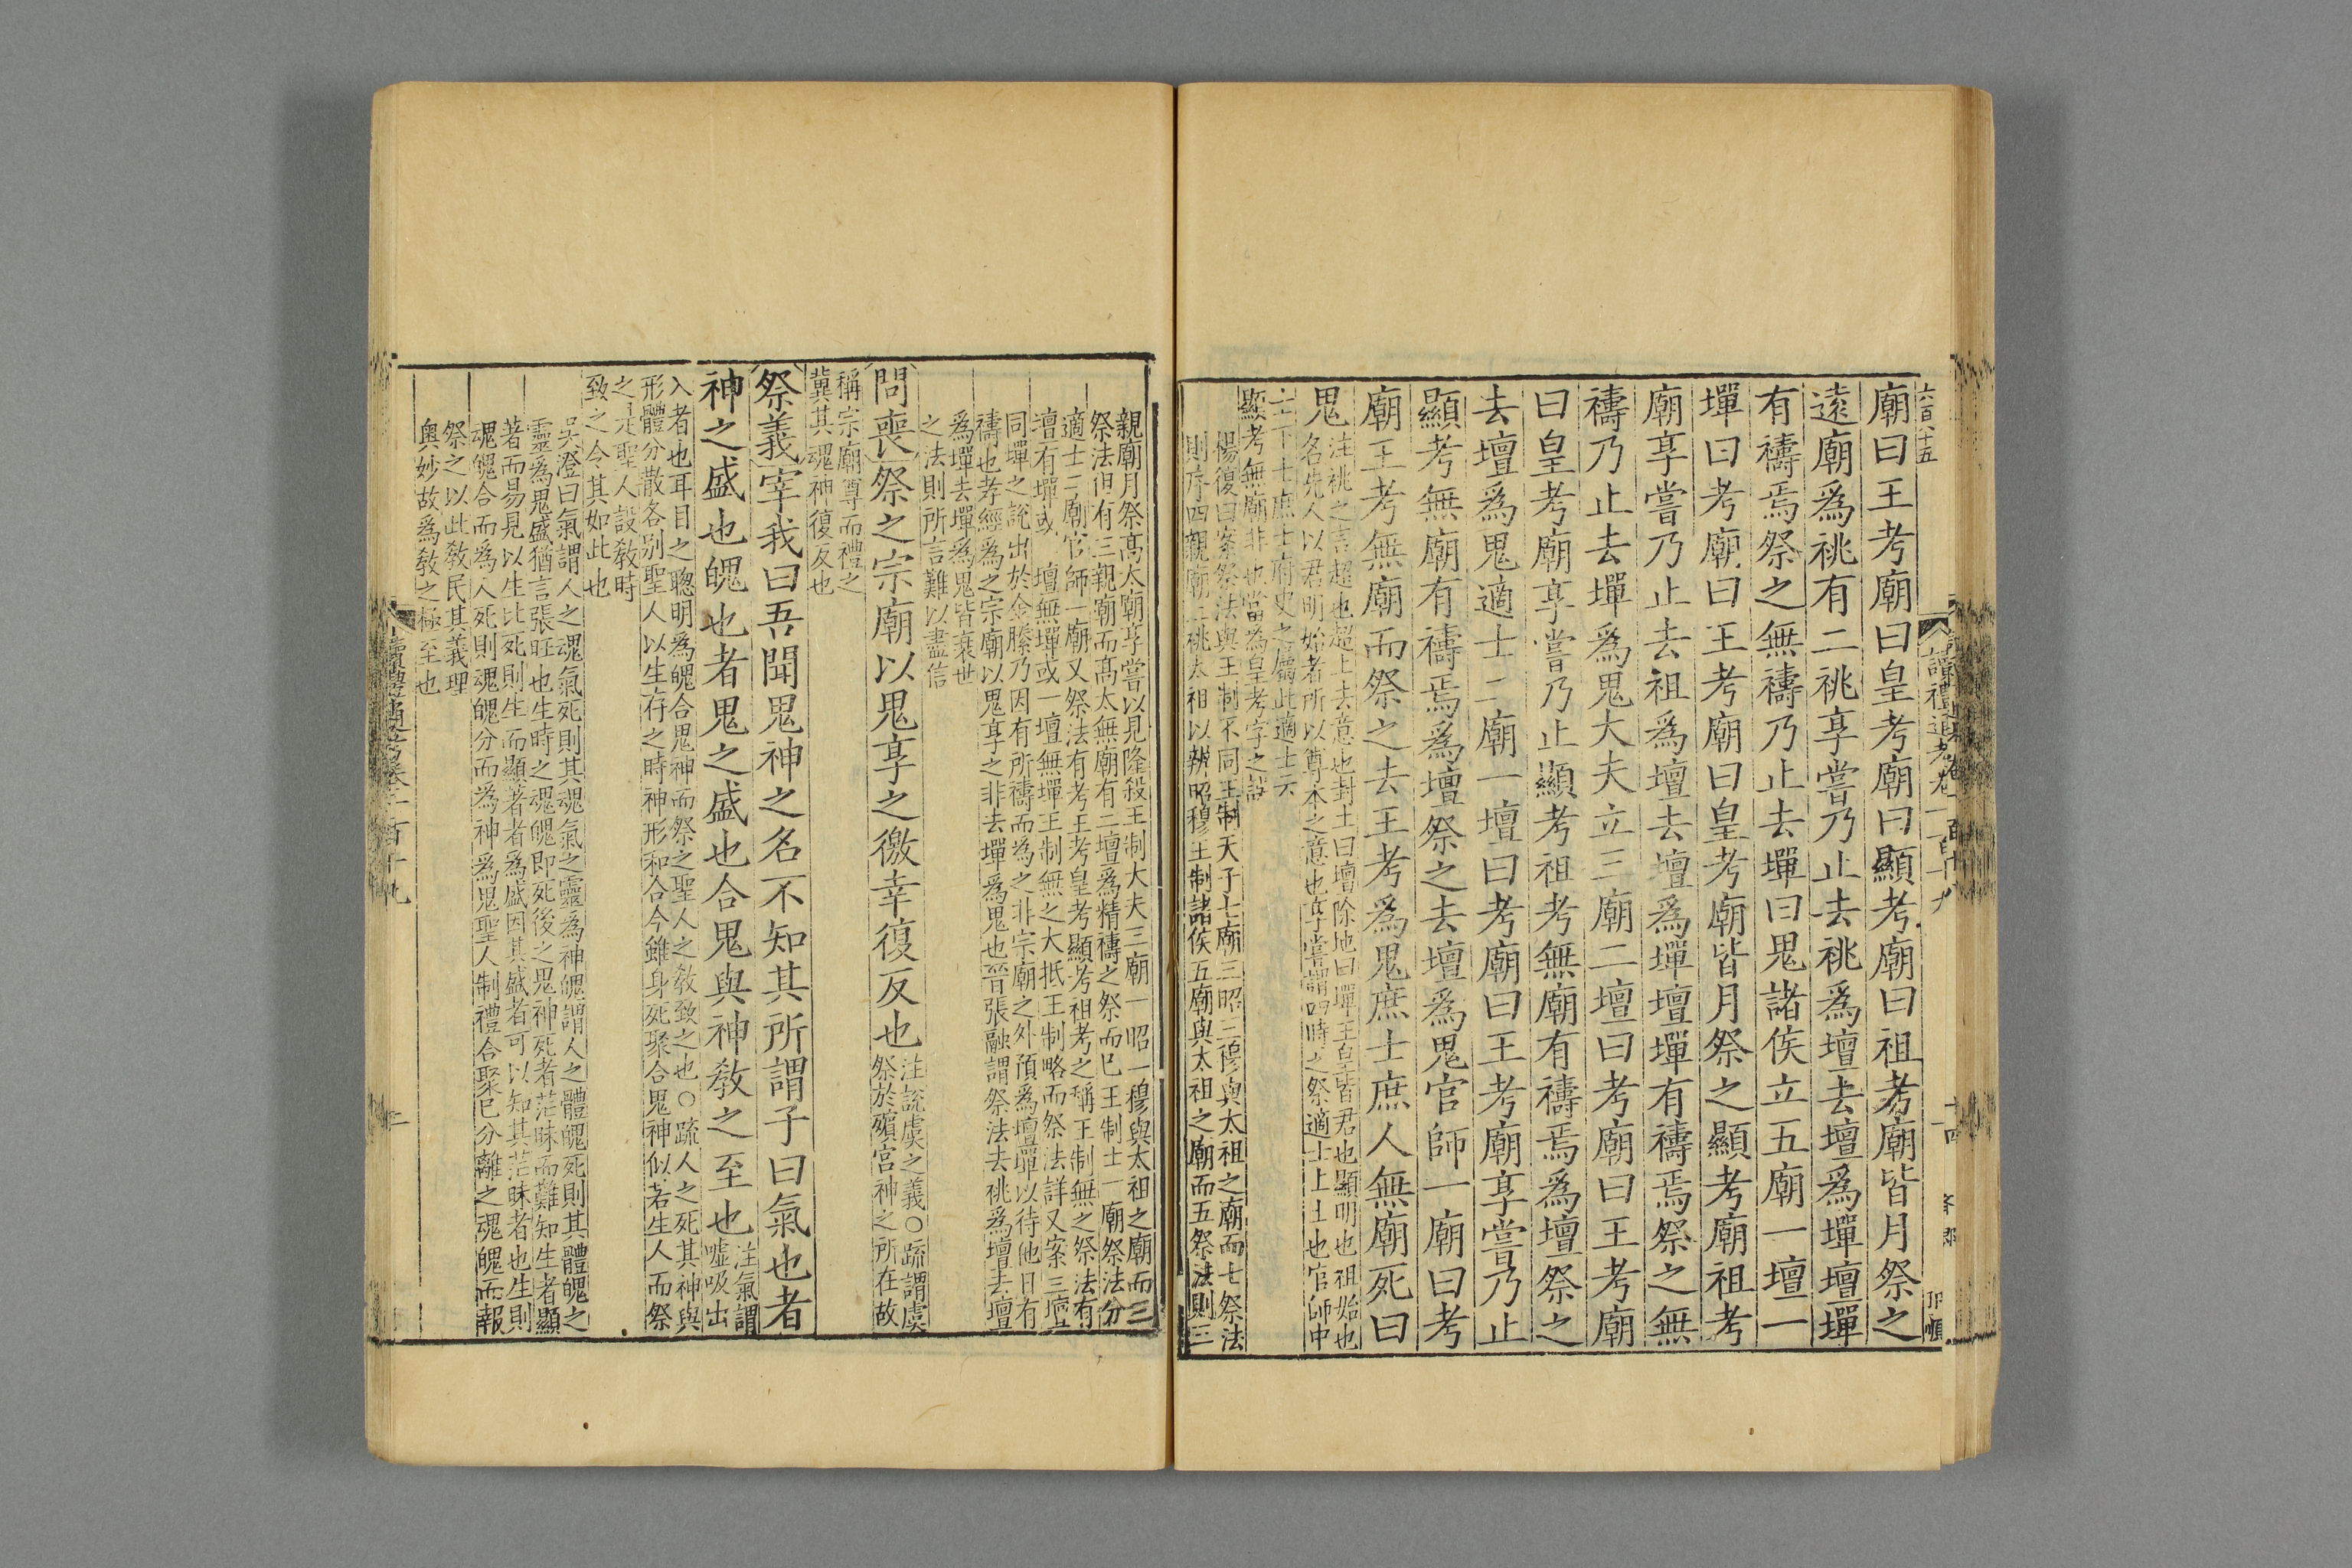 六百八十五
廟曰王考廟曰皇考廟曰顯考廟曰祖考廟皆月祭之
遠廟爲祧有二祧享嘗乃止去祧爲壇去壇爲墠壇墠
有禱焉祭之無禱乃止去墠曰鬼諸侯立五廟一壇一
墠曰考廟曰王考廟曰皇考廟皆月祭之顯考廟祖考
廟享嘗乃止去祖爲壇去壇爲墠壇墠有禱焉祭之無
禱乃止去墠爲鬼大夫立三廟二壇曰考廟曰王考廟
曰皇考廟享嘗乃止顯考祖考無廟有禱焉爲壇祭之
去壇爲鬼適士二廟一壇曰考廟曰王考廟享嘗乃止
顯考無廟有禱焉爲壇祭之去壇爲鬼官師一廟曰考
廟王考無廟而祭之去王考爲鬼庶士庶人無廟死曰
鬼
注祧之言超也超上去意也封土曰壇除地曰墠王皇皆君也顯明也祖始也
名先人以君明始者所以尊本之意也享嘗謂四時之祭適士上士也官師中
士下士庶士府史之屬此適士云
顯考無廟非也當為皇考字之誤
楊復曰案祭法與王制不同王制天子七廟三昭三穆與太祖之廟而七祭法
則序四親廟二祧太祖以辨昭穆王制諸侯五廟與太祖之廟而五祭法則三
親廟月祭高太廟享嘗以見隆殺王制大夫三廟一昭一穆與太祖之廟而三
祭法但有三親廟而高太無廟有二壇爲精禱之祭而已王制士一廟祭法分
適士二廟官師一廟又祭法有考王考皇考顯考祖考之稱王制無之祭法有
壇有墠或二壇無墠或一壇無墠王制無之大抵王制略而祭法詳又案三壇
同墠之說出於金縢乃因有所禱而為之非宗廟之外預爲壇墠以待他日有
禱也孝經爲之宗廟以鬼享之非去墠爲鬼也晉張融謂祭法去祧爲壇去壇
爲墠去墠爲鬼皆衰世
之法則所言難以盡信
問喪祭之宗廟以鬼享之徼幸復反也
注說虞之義○疏謂虞
祭於殯宮神之所在故
稱宗廟尊而禮之
冀其魂神復反也
祭義宰我曰吾聞鬼神之名不知其所謂子曰氣也者
神之盛也魄也者鬼之盛也合鬼與神敎之至也
注氣謂
噓吸出
入者也耳目之聰明爲魄合鬼神而祭之聖人之敎致之也○疏人之死其神與
形體分散各別聖人以生存之時神形和合今雖身死聚合鬼神似若生人而祭
之是聖人設敎時
致之令其如此也
吳澄曰氣謂人之魂氣死則其魂氣之靈為神魄謂人之體魄死則其體魄之
靈為鬼盛猶言張旺也生時之魂魄即死後之鬼神死者茫昧而難知生者顯
著而易見以生比死則生而顯著者爲盛因其盛者可以知其茫昧者也生則
魂魄合而爲人死則魂魄分而為神爲鬼聖人制禮合聚已分離之魂魄而報
祭之以此敎民其義理
奧妙故爲敎之極至也
讀禮通考卷一百十九